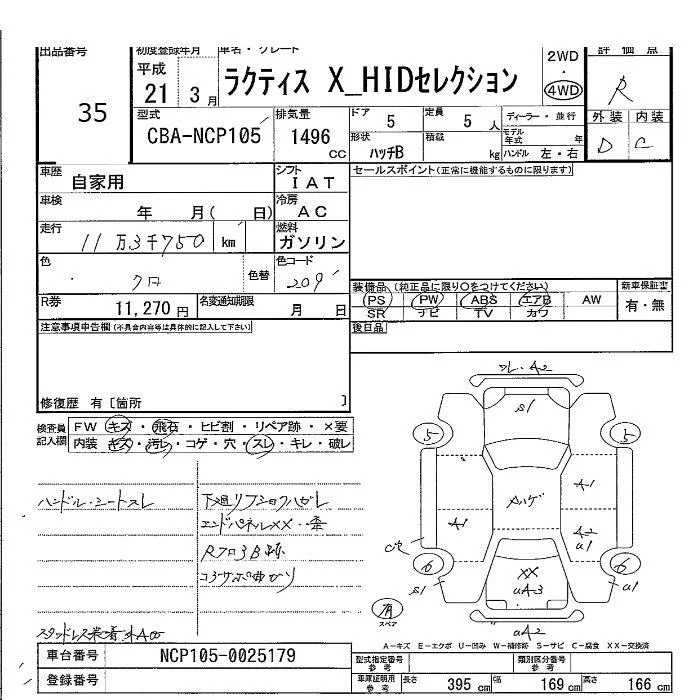 出品番号
35
初度登録年月
平成
21 3月
車名・グレード
ラクティス X_HIDセレクション
2WD
・
4WD
評価点
R
外装 内装
D C
型式
CBA-NCP105
排気量
1496 cc
ドア 5
定員 5 人
形状 ハッチB
積載 kg
ディーラー・並行
モデル年式 年
ハンドル 左・右
車歴 自家用
シフト IAT
車検 年 月( 日)
冷房 AC
走行 11万3千750 km
燃料 ガソリン
色 クロ
色替
色コード 209
R券 11,270円
名変通知期限 月 日
セールスポイント(正常に機能するものに限ります)
装備品 (純正品に限り○をつけてください)
PS PW ABS エアB AW
SR ナビ TV カワ
新車保証書
有・無
後日品
注意事項申告欄(不具合内容等は具体的に記入して下さい)
修復歴 有[箇所 ]
検査員記入欄
FW キズ・飛石・ヒビ割・リペア跡・×要
内装 キズ・汚レ・コゲ・穴・スレ・キレ・破レ
ハンドル・シートスレ
下廻リフショクハガレ
エンドパネルXX
Rフロア
コアサポ曲がり
スタッドレス装着
フレ・A2
S1
5 5
Aハゲ
A-1
A-1
A-2
u1
6 6
S1
u1
XX
uA-3
uA2
有
スペア
A-キズ E-エクボ U-凹み W-補修跡 S-サビ C-腐食 XX-交換済
車台番号 NCP105-0025179
登録番号
型式指定番号 参考
類別区分番号 参考
車庫証明用 参考
長さ 395 cm
幅 169 cm
高さ 166 cm